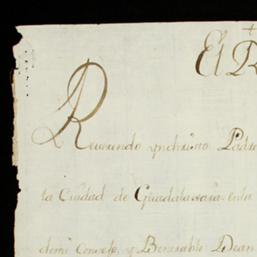 El R
Reverendo ynchristo Padre
la Ciudad de Guadalaxara enla
demi Consejo, y Venerable Dean